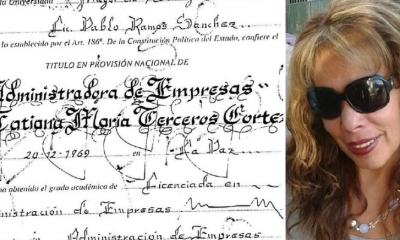 Lic. Pablo Ramos Sánchez
lo establecido por el Art. 186º. De la Constitución Política del Estado, confiere el
TITULO EN PROVISIÓN NACIONAL DE
Administradora de Empresas
Tatiana María Terceros Corte
20-12-1969 en La Paz
a obtenido el grado académico de Licenciada en
inistración de Empresas
Administración de Empresas